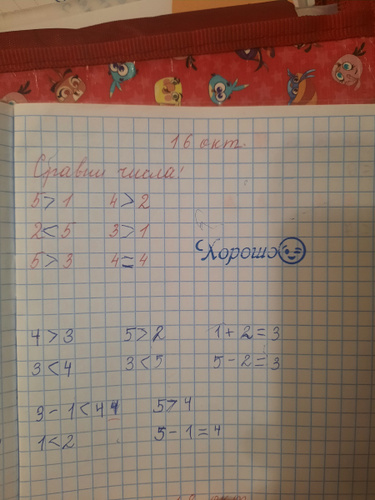 16 окт.
Сравни числа!
5 > 1 4 > 2
2 < 5 3 > 1
5 > 3 4 = 4
Хорошо
4 > 3 5 > 2 1 + 2 = 3
3 < 4 3 < 5 5 - 2 = 3
9 - 1 < 44 5 > 4
1 < 2 5 - 1 = 4